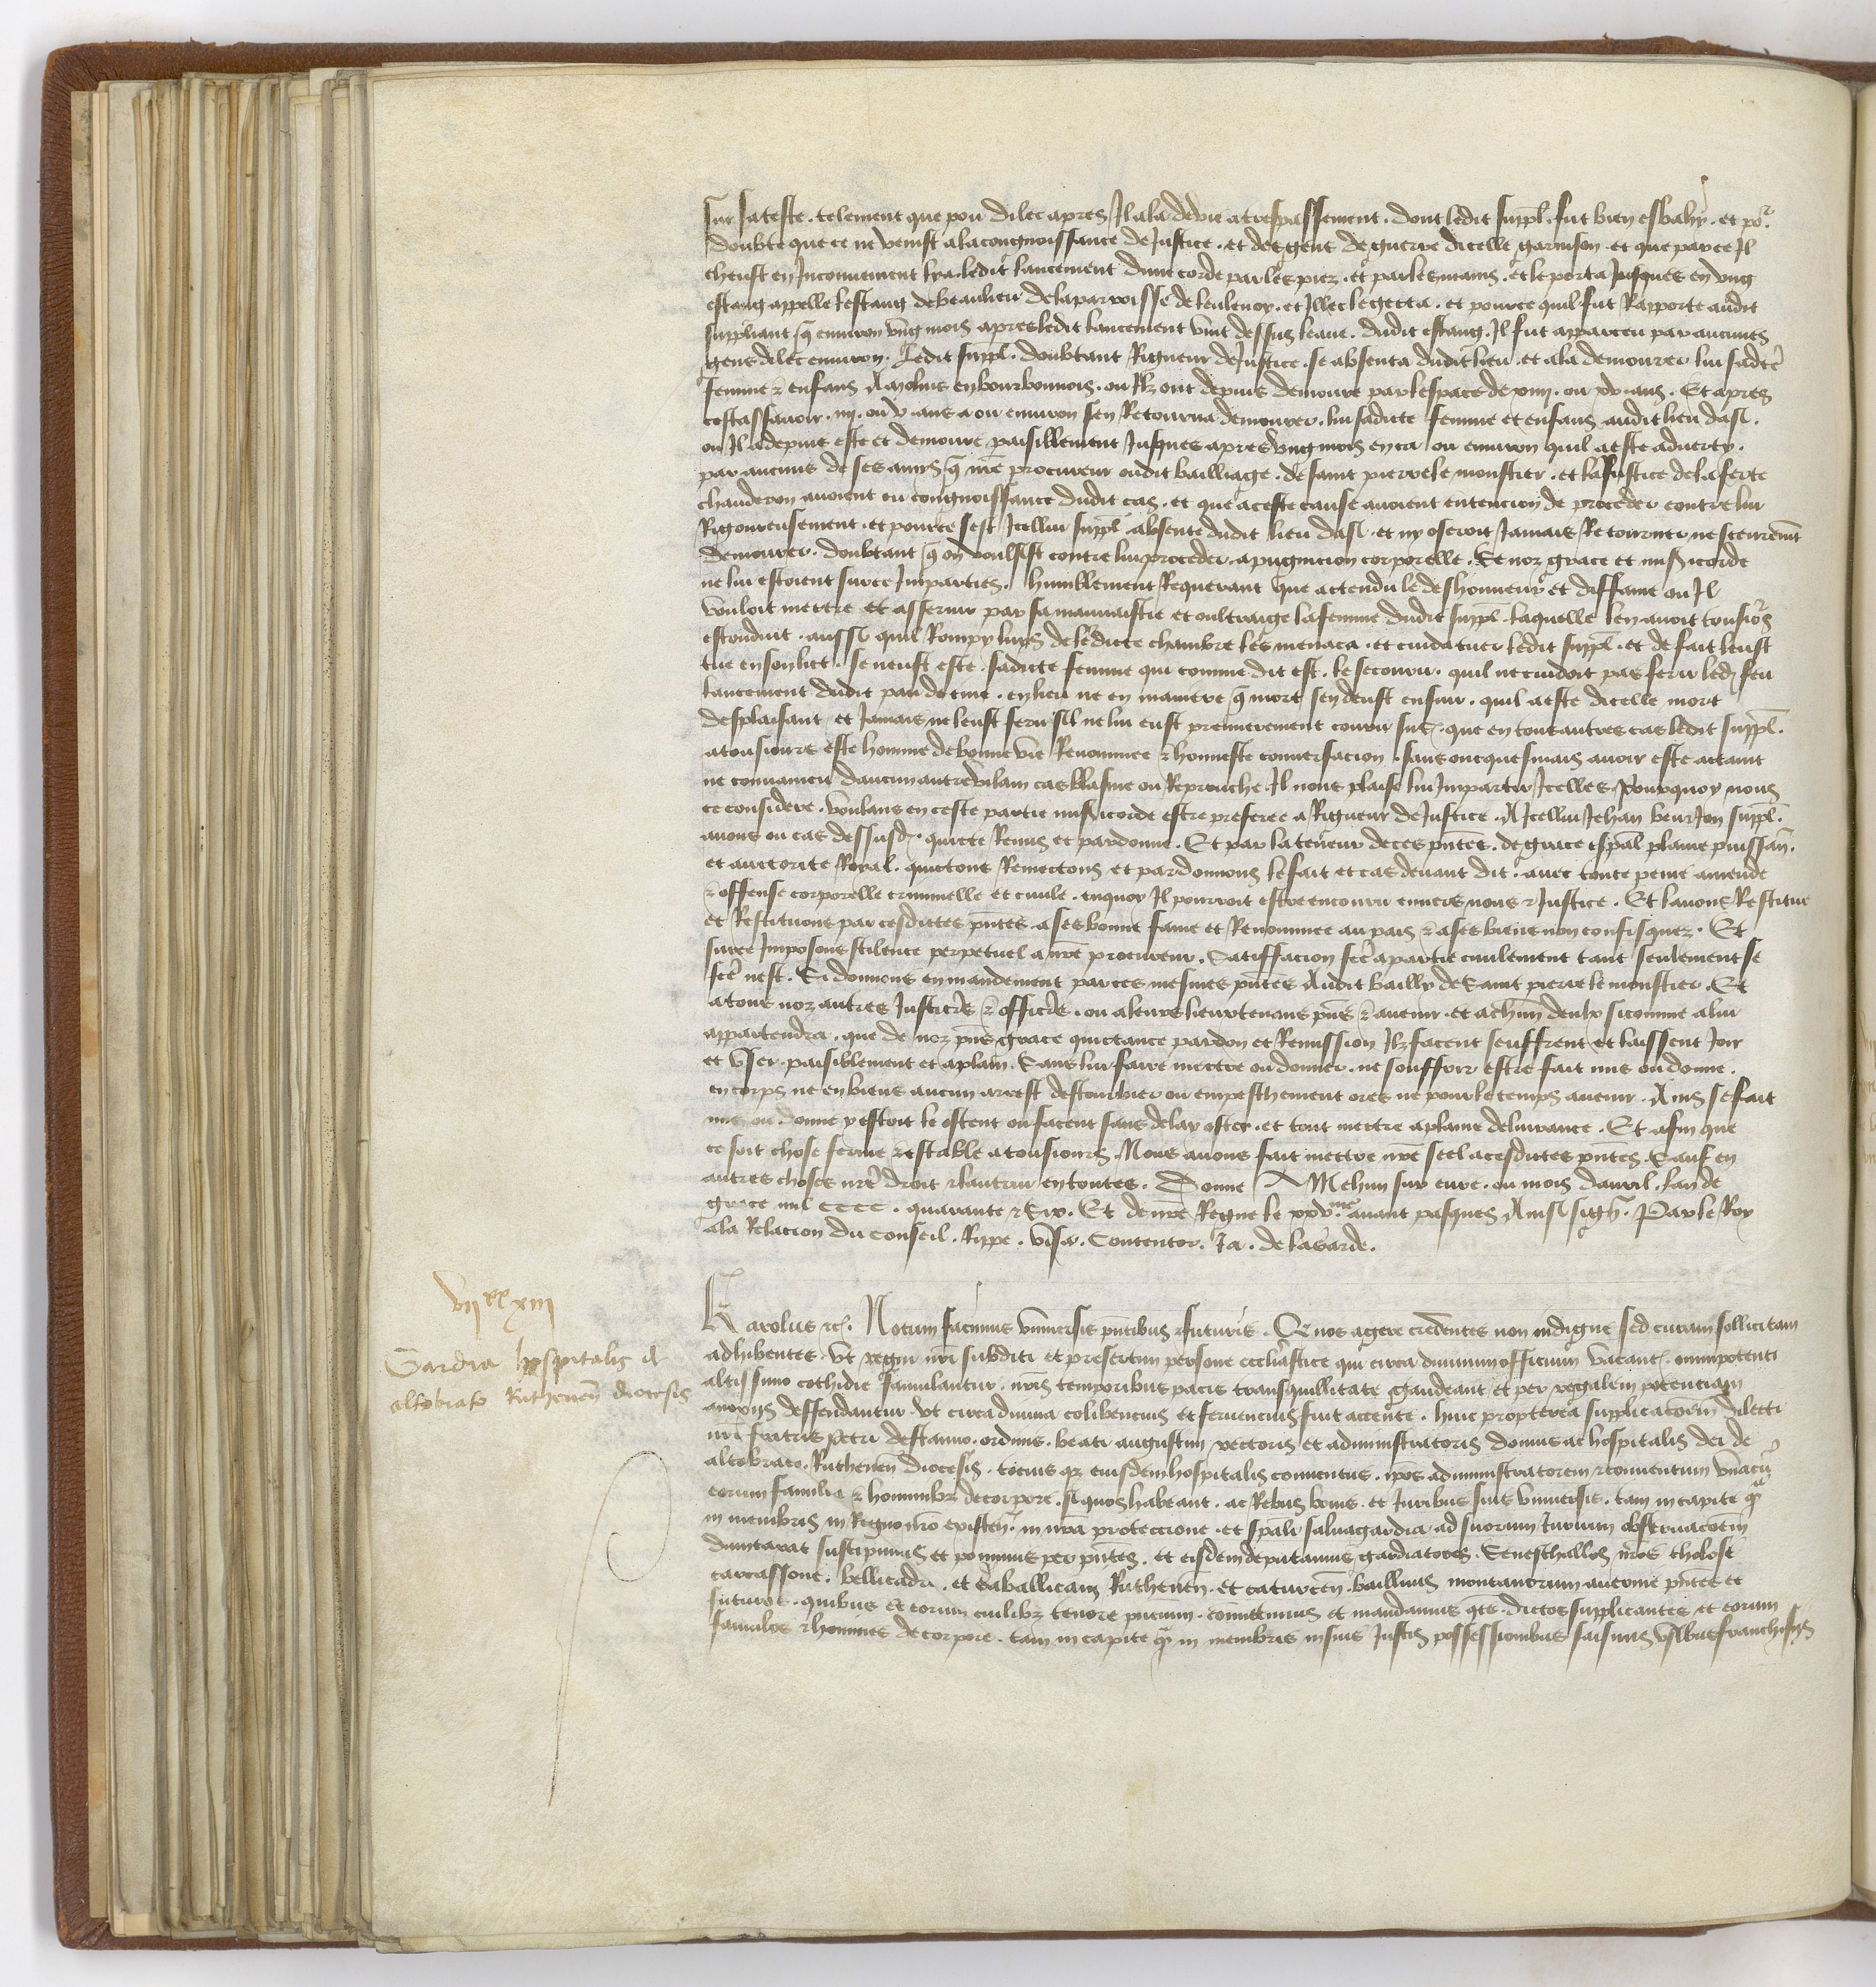 sur sa teste . telement que pou dilec apres Il ala de vie a trespassement . dont ledit suppl . fut bien esbahy . et po
doubte que ce ne venist a la congnoissance de Justice . et des gens de guerre dicelle garnison . et que par ce Il
cheust en Inconvenient lya ledit lancement dune corde par les piez . et par les mains . et le porta jusques en ung
estang appelle lestang de beaulieu de la parroisse de . et Illec le gecta . et pource quil fut Rapporte audit
suppliant q environ ung mois apres ledit lancement vint dessus leaue . dudit estang . Il fut apparceu par aucunes
gens dilec environ . Ledit suppl . doubtant Rigueur de Justice . se absenta dudit lieu . et ala demourer lui sadte
femme & enfans A molins en bourbonnois . ou Ilz ont depuis demoure par lespace de xiiii . ou xv ans . Et apres
cestassavoir . iiii . ou v ans a ou environ sen Retourna demourer . lui sadicte femme et enfans audit lieu dasi .
ou Il a depuis este et demoure paisiblement Jusques apres ung mois en ca ou environ quil a este adverty .
par aucuns de ses amys q nre procureur oudit bailliage . de saint pierre le monstier . et la Justice de la ferte
chauderon avoient eu congnoissance dudit cas . et que a ceste cause avoient entencion de proceder contre lui
Rigoureusement . et pource sest Icellui suppl absente dudit lieu dasi . et ny oseroit Jamais Retourner ne seurement
demourer . doubtant q on voulsist contre lui proceder . a pugnicion corporelle . Se noz grace et misericorde
ne lui estoient sur ce Imparties . humblement Requerant que attendu le deshonneur et diffame ou Il
vouloit mettre et asservir par sa mauvaistie et oultraige la femme dudit suppl laquelle len avoit tousiors
estonduit . aussi quil Rompy luys de ledicte chambre les menaca . et cuida tuer ledit suppl . et de fait leust
tue en son lict . se neust este sadicte femme qui comme dit est . le secouru . quil ne cuidoit pas ferir led feu
lancement dudit pau de tine . en lieu ne en maniere q mort sen deust ensuir . quil a este dicelle mort
desplaisant . et Jamais ne leust feru sil ne lui eust premierement couru sus . que en tout autres cas ledit suppl .
a tousiours este homme de bonne vie Renommee & honneste conversacion . sans oncquesmais avoir este attaint
ne convaincu daucun autre vilain cas blasme ou Reprouche Il nous plaise lui Impartir Icelles . Pourquoy nous
ce considere . voulans en ceste partie misericorde estre preferee a Rigueur de Justice . A Icellui Jehan suppl .
avons ou cas dessusd . quicte Remis et pardonne . Et par la teneur de ces pntes . de grace espal plaine puissan .
et auctorite Royal . quictons Remectons et pardonnons le fait et cas devant dit . avec toute peine amende
& offense corporelle criminelle et civile . en quoy Il pourroit estre encouru envers nous & Justice . Et lavons Restitue
et Restituons par cesdictes pntes a ses bonne fame et Renommee au pais & a ses biens non confisquez . Et
sur ce Imposons silence perpetuel a nre procureur . Satisfacion fte a partie civilement tant seulement se
fte nest . Si donnons en mandement par ces mesmes pntes Audit bailly de Saint pierre le monstier . Et
a tous noz autres Justiciers & officiers . ou a leurs lieuxtenans pns & avenir . et a chun deulx sicomme a lui
appartendra . que de noz pns grace quictance pardon et Remission Ilz facent seuffrent et laissent Joir
et user paisiblement et a plain . Sans lui faire mettre ou donner . ne souffrir estre fait mis ou donne .
en corps ne en biens aucun arrest destourbier ou empeschement ores ne pour le temps avenir . Ains se fait
mis ou donne y estoit le ostent ou facent sans delay oster . et tout mettre a plaine delivrance . Et afin que
ce soit chose ferme & estable a tousiours . Nous avons fait mettre nre seel a cesdictes pntes . Sauf en
autres choses nre droit & lautruy en toutes . Donne A Mehun sur evre . ou mois davril . lan de
grace mil CCCC . quarante & six . Et de nre Regne le xxv.me avant pasques Ainsi sign . Par le Roy
a la Relacion du conseil . Rippe . visa . Contentor . Ja . de la garde .
vii xx xiii
Gardia hospitalis de
altobraco Ruthenen diocesis
Karolus &c . Notum facimus universis pntibus & futuris . Q nos agere credentes non indigne sed curam sollicitam
adhibentes . ut regni nri subditi et presertim persone ecclastice qui circa divinum officium vacant . omnipotenti
altissimo cothidie famulantur . nris temporibus pacis transquillitate gaudeant et per regalem potenciam
anoxiis deffendantur . ut circa divina colibencius et fervencius sint accente . hinc propterea supplicacoem dilecti
nri fratris Petri destanno . ordinis . beati augustini rectoris et administratoris domus ac hospitalis dei de
altobraco . Ruthenen diocesis . tocius qz eiusdem hospitalis conventus . ipos administratorem & conventum unacu
eorum familia & hominibz de corpore . si quos habeant . ac Rebus bonis . et Juribus suis universis . tam in capite q
in membris in Regno nro existen . in nra proteccione . et spali salvagardia ad suorum Jurium observacoem
dumtaxat suscipimus et ponimus per pntes . et eisdem deputamus gardiatores . Senescallos nros tholose
carcassone . bellicadri . et Ruthenen . et caturcen . baillivis montanorum auvernie pntes et
futuros . quibus & eorum cuilibz tenore pncium . comittimus et mandamus qts . dictos supplicantes et eorum
famulos & homines de corpore . tam in capite q in membris in suis Justis possessionibus saisinis usibus franchisiis